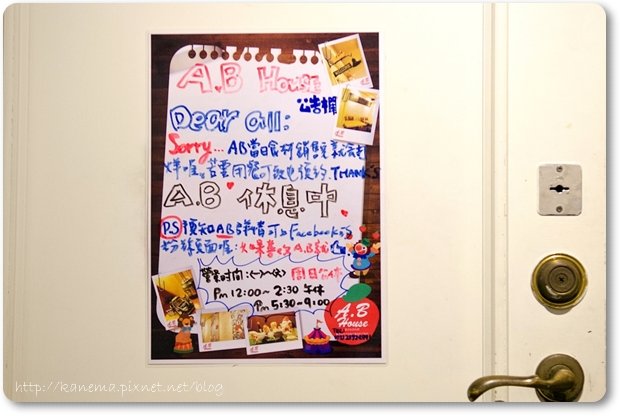 A.B House
公告欄
Dear all:
Sorry... AB當日食材銷售完就會打
烊喔。若要用餐可致電預約. THANK'S
A.B 休息中
P.S 預知AB詳情可以Facebook
粉絲頁面喔:
營業时間:(一)~(六) 周日公休
Pm 12:00~2:30 午休
Pm 5:30~9:00
A.B
House
http://kanema.pixnet.net/blog